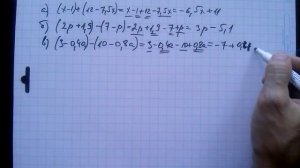 а) (x-1)+(12-7,5x)=x-1+12-7,5x=-6,5x+11
б) (2p+1,9)-(7-p)=2p+1,9-7+p=3p-5,1
в) (3-0,4a)-(10-0,8a)=3-0,4a-10+0,8a=-7+0,4